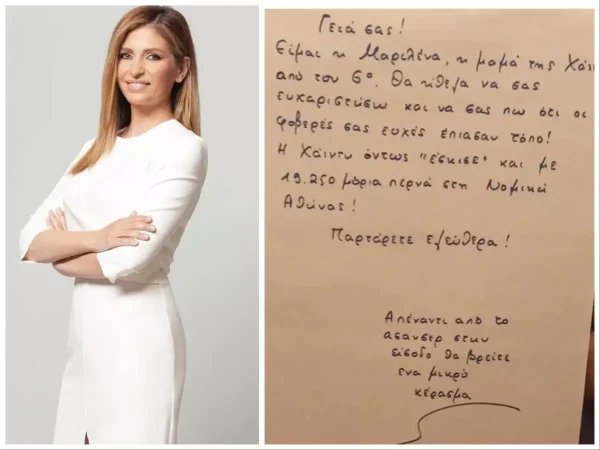 Γειά σας!
Είμαι η Μαριλένα, η μαμά της Χάιν
από τον 6º. Θα ήθελα να σας
ευχαριστώσω και να σας πω ότι οι
φοβερές σας ευχές έπιασαν τόπο!
Η Χάιντυ όντως "έσκισε" και με
19.250 μόρια περνά στη Νομική
Αθήνας!
Παρτάρετε ελεύθερα!
Απέναντι από το
ασανσερ στην
είσοδο θα βρείτε
ένα μικρό
κέρασμα